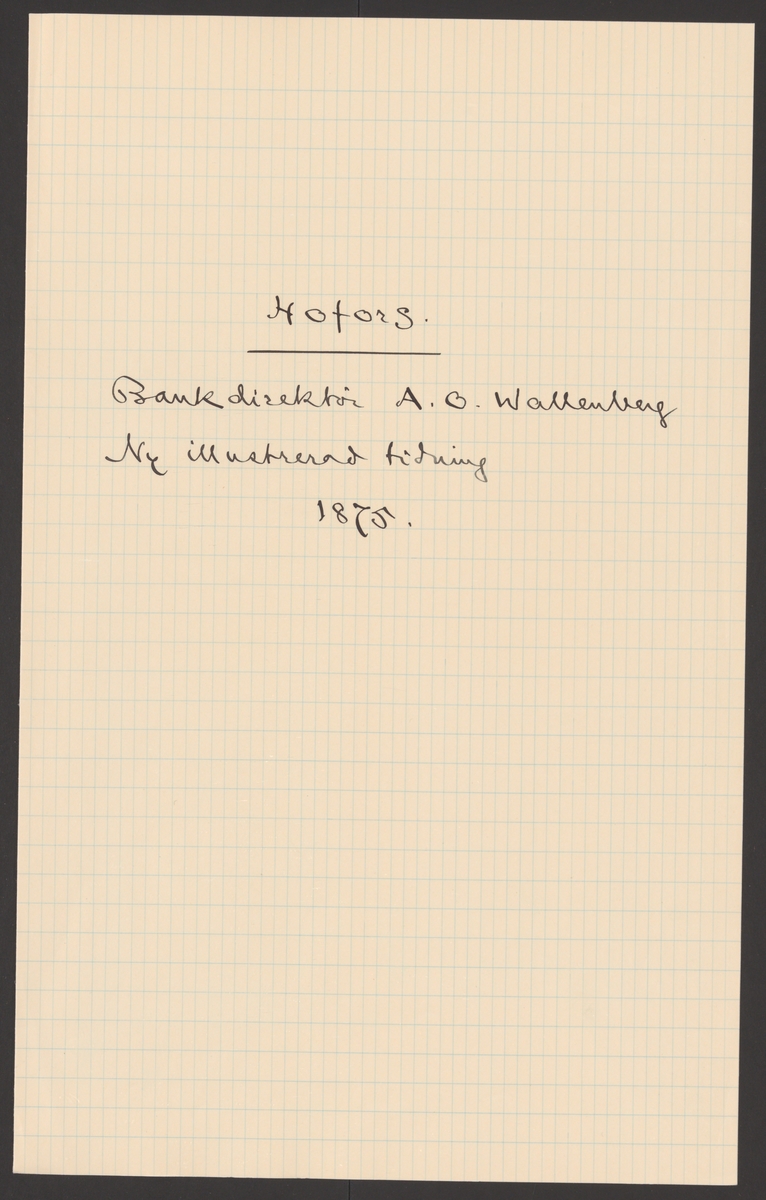 Hofors.
Bankdirektör A. O. Wallenberg
Ny illustrerad tidning
1875.